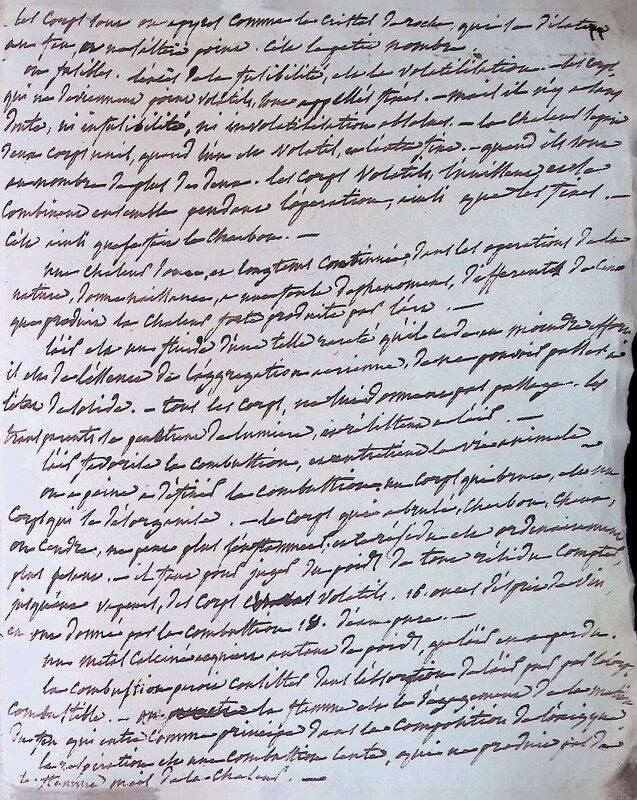 les corps sont ou apyres comme le cristal de roche, qui se dilate
au feu et ne s'altère point. C'est le petit nombre.
ou fusibles. Degrés de la fusibilité, et de la volatilisation. les corps
qui ne deviennent point volatils, sont appellés fixes. — mais il n'y a sans
doute, ni infusibilité, ni involatilisation absolues. — la Chaleur sépare
deux corps unis, quand l'un est volatil, et l'autre fixe. — quand ils sont
au nombre de plus de deux. les corps volatils, s'unissent et se
combinent ensemble pendant l'opération, ainsi que les fixes. —
C'est ainsi que se fait le Charbon. —
une Chaleur douce, et longtems continuée, dans les operations de la
nature, donne naissance, a une foule de phenomenes, differents de ceux
que produit la Chaleur forte produite par l'art. —
l'air est un fluide d'une telle rareté qu'il cede au moindre effort
il est de l'essence de l'aggregation aerienne, de ne pouvoir passer a
l'état de solide. — tous les corps, ne lui donnent pas passage. les
transparents se penetrent de lumiere, et résistent a l'air. —
l'air favorise la combustion, et entretient la vie animale
on a peine a définir la combustion. un corps qui brule, est un
corps qui se désorganise. — le corps qui a brulé, Charbon, Chaux,
ou Cendre, ne peut plus s'enflammer. et le résidu est ordinairement
plus pesant. — il faut pour juger du poids de tout résidu compter
jusqu'aux vapeurs, des corps volatils. 16. onces d'esprit de vin,
en ont donné par la combustion 18. d'eau pure. —
un metal calciné acquiert autant de poids, que l'air en a perdu.
la combustion paroit consister dans l'absorption de l'air pur par le corps
combustible. — la flamme est le dégagement de la matiere
du feu qui entre comme principe dans la composition de l'oxigene.
la respiration est une combustion lente, qui ne produit pas de
flamme mais de la chaleur. —